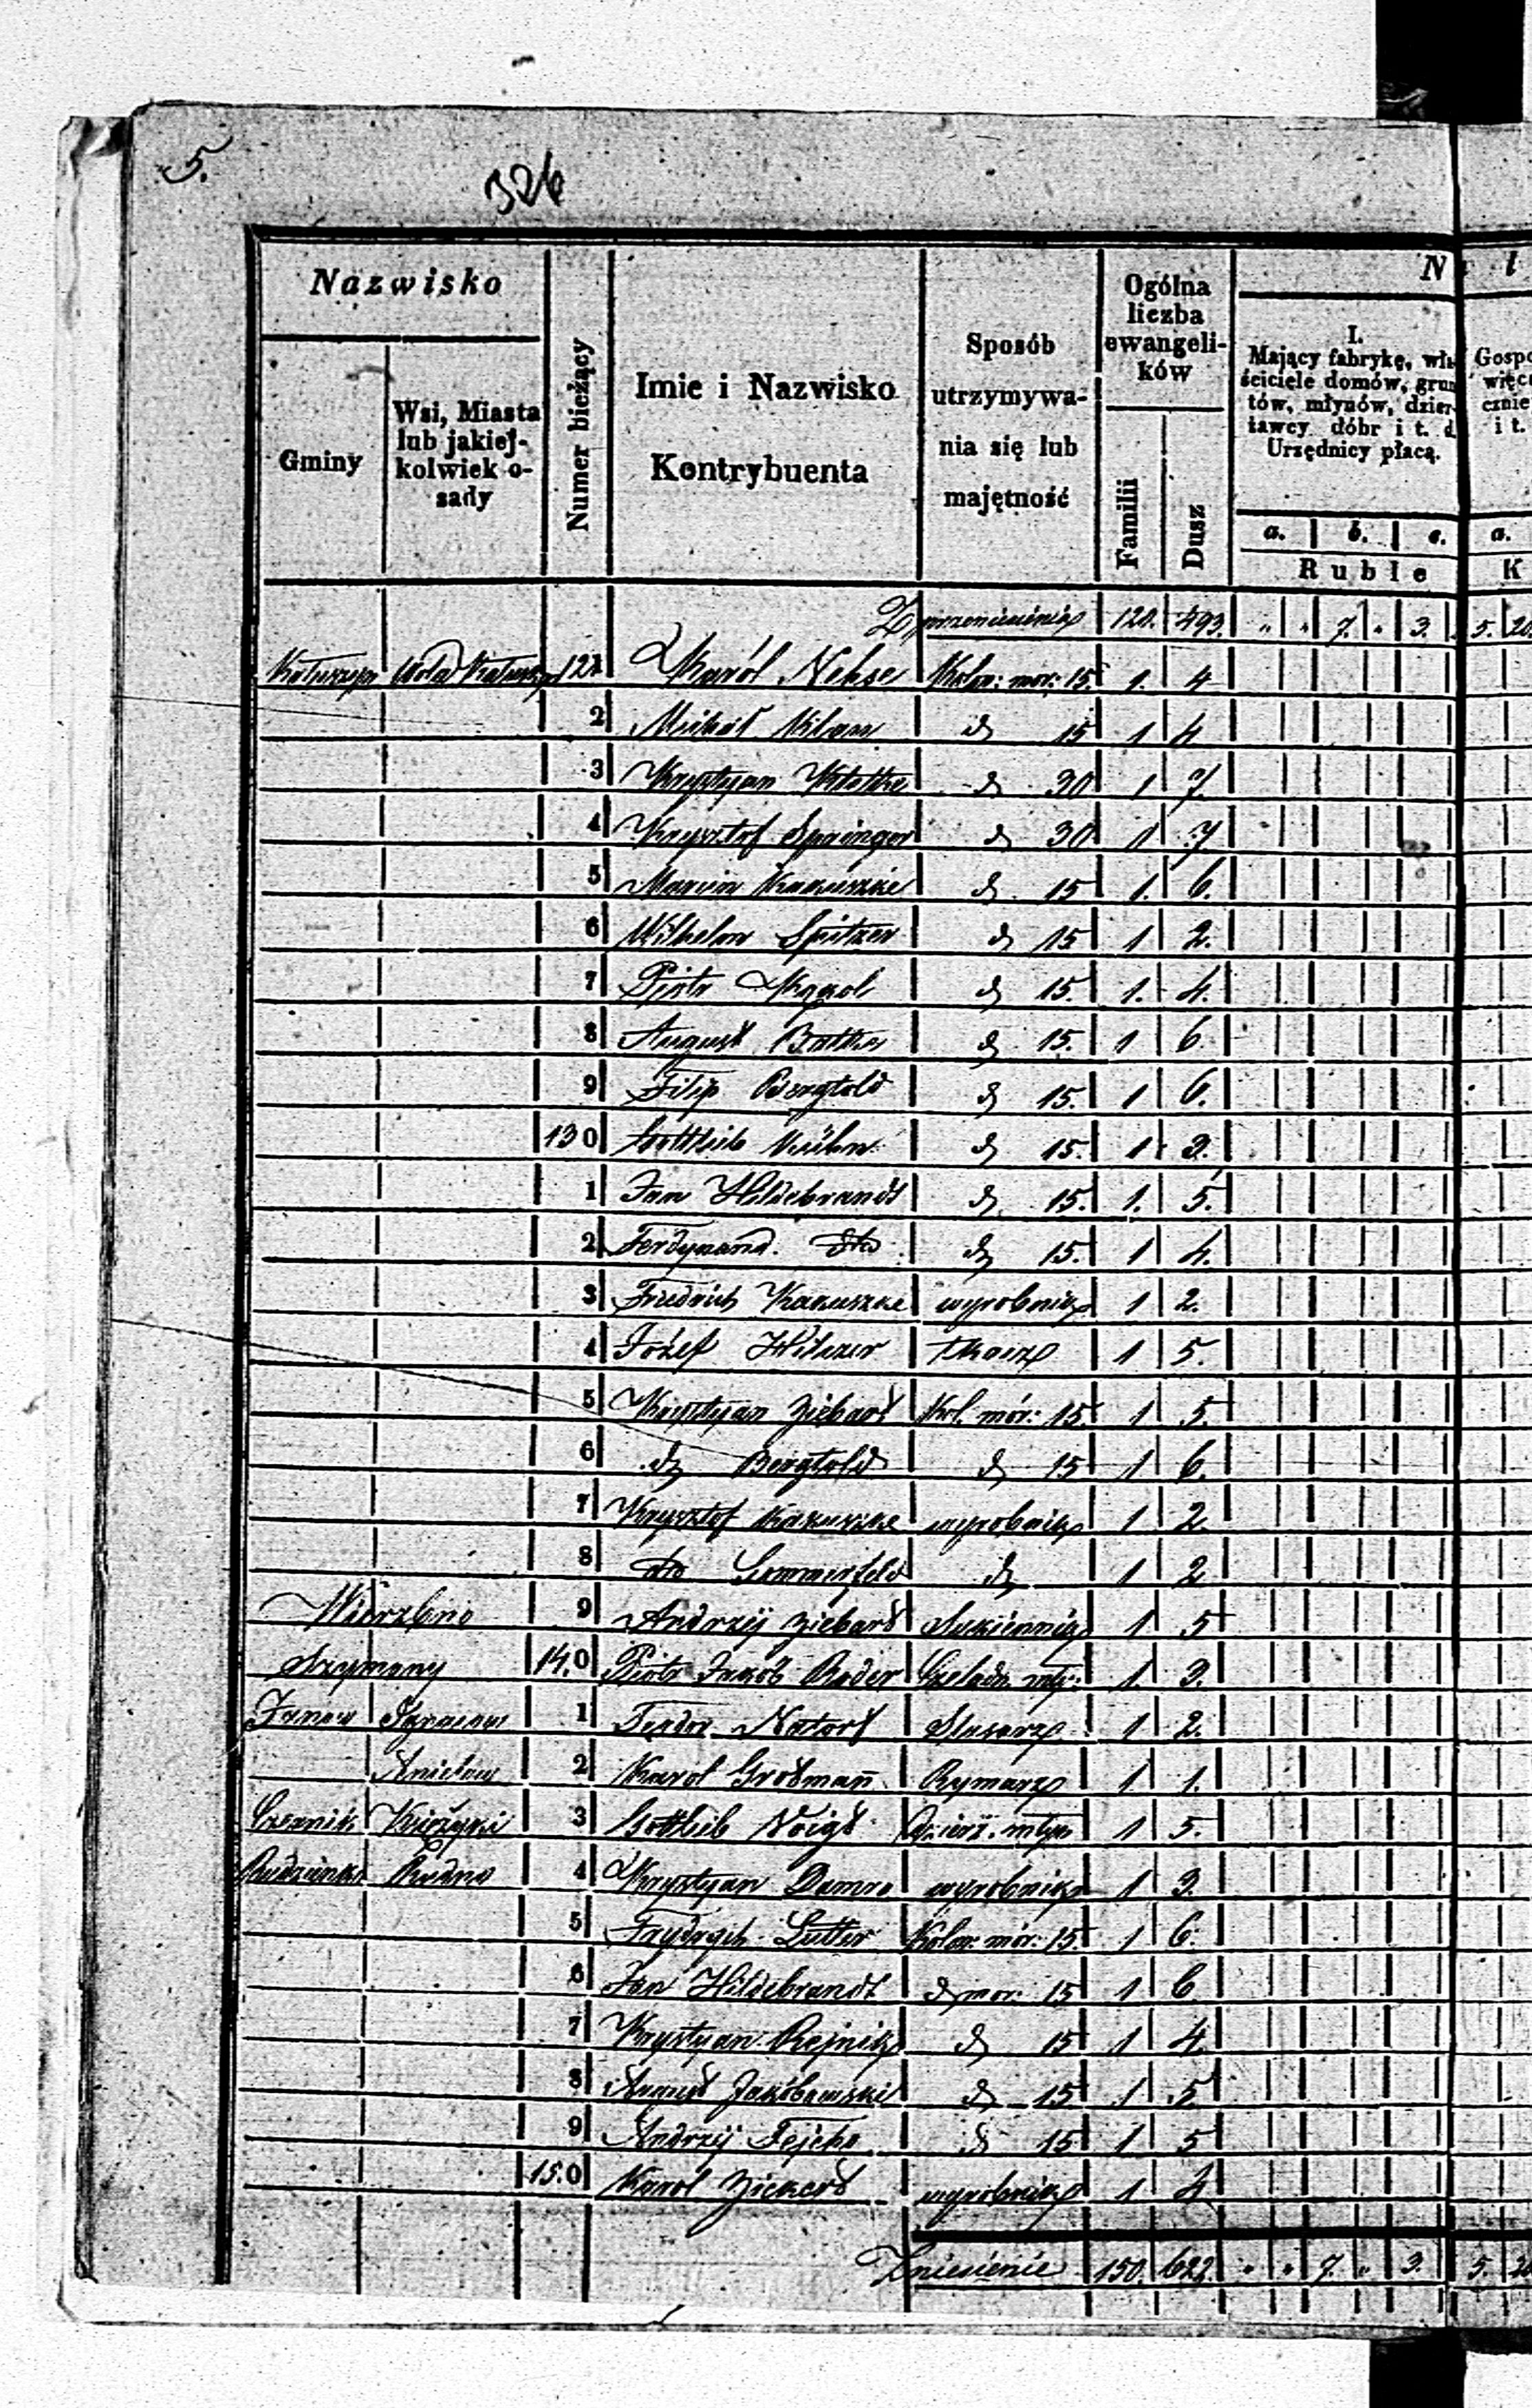 5.
326
Nazwisko
Gminy
Wsi, Miasta lub jakiej-kolwiek o-sady
Numer bieżący
Imie i Nazwisko Kontrybuenta
Sposób utrzymywa-nia się lub majętność
Ogólna liczba ewangeli-ków
Familii
Dusz
N l
I. Mający fabrykę, wła-ściciele domów, grun-tów, młynów, dzier-żawcy dóbr i t. d. Urzędnicy płacą.
a. b. c. a.
Ruble K
Z przeniesienia 120. 493. " " 7. " 3. 5. 20
Wola 121 Karól Nehse Kolon: mor: 15. 1. 4
2 Michał 15 1 4
3 Krystyan Klatke d 30 1 7.
4 Krysztof Springer d 30 1 7
5 Marcin Kakuszke d 15 1. 6.
6 Wilhelm Spitzer d 15 1 2.
7 Piotr d 15. 1. 4.
8 August d 15. 1 6
9 Filip Bergtold d 15. 1 6.
130 Gottlieb Kühn d 15. 1 3.
1 Jan Hildebrandt d 15. 1. 5.
2 Ferdynand dto d 15. 1 4.
3 Friedrich Kakuszke wyrobnik 1 2.
4 Józef tkacz 1 5.
5 Krystyan Ziebart Kol. mór: 15. 1 5.
6 d Bergtold d 15 1 6.
7 Krysztof Kakuszke wyrobnik 1 2.
8 dto Sommerfeld d 1 2
Wierzbno 9 Andrzéj Ziebart Sukiennik 1 5
Szymony 140 Piotr Jakób Rader Czeladn. mły: 1. 3.
Janow Ignacow 1 Teodor Natorf Slusarz 1 2.
Anielow 2 Karol Grosmann Rymarz 1 1.
Czernik 3 Gottlieb Voigt Dzierż. młyn 1 5.
Rudzienko Rudno 4 Krystyan Damro wyrobnik 1 3.
5 Frydrych Lutter Kolon: mór: 15. 1 6.
6 Jan Hildebrandt d mor: 15 1 6
7 Krystyan Rejnik d 15 1 4.
8 August Jakóbowski d 15 1 5
9 Andrzéj Tejcho d 15 1 5
150 Karol wyrobnik 1 4
Zniesienie 150. 622. " " 7. " 3. 5. 20